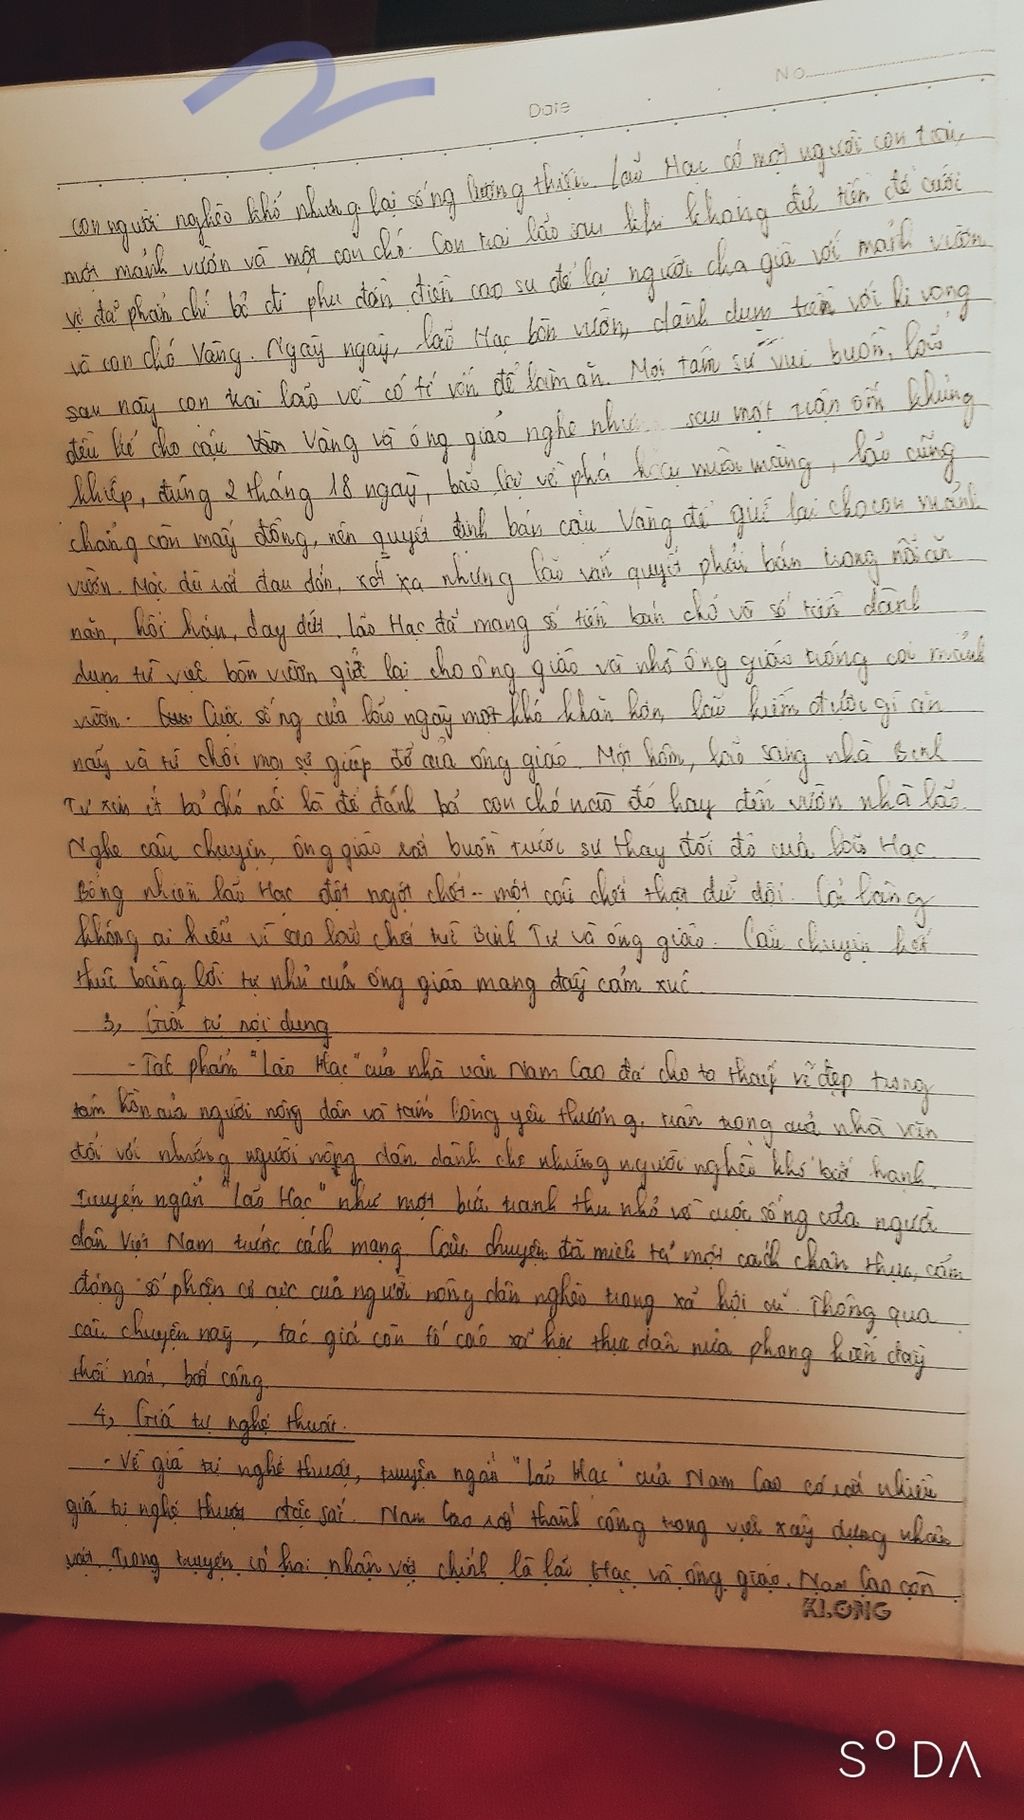 2
No
Date
con người nghèo khó nhưng lại sống lương thiện. Lão Hạc có một người con trai,
một mảnh vườn và một con chó. Con trai lão sau khi không đủ tiền để cưới
vợ đã phẫn chí bỏ đi phu đồn điền cao su để lại người cha già với mảnh vườn
và con chó Vàng. Ngày ngày, lão Hạc bòn vườn, dành dụm tiền với hi vọng
sau này con trai lão về có tí vốn để làm ăn. Mọi tâm sự vui buồn, lão
đều kể cho cậu Vàng và ông giáo nghe sau một trận ốm khủng
khiếp, đúng 2 tháng 18 ngày, bão lại về phá mùa màng, lão cũng
chẳng còn mấy đồng, nên quyết định bán cậu Vàng để giữ lại cho con mảnh
vườn. Mặc dù rất đau đớn, xót xa nhưng lão vẫn quyết phải bán trong nỗi ăn
năn, hối hận, day dứt. Lão Hạc đã mang số tiền bán chó và số tiền dành
dụm từ việc bòn vườn gửi lại cho ông giáo và nhờ ông giáo trông coi mảnh
vườn. Cuộc sống của lão ngày một khó khăn hơn, lão kiếm được gì ăn
nấy và từ chối mọi sự giúp đỡ của ông giáo. Một hôm, lão sang nhà Binh
Tư xin ít bả chó nói là để đánh bả con chó nào đó hay đến vườn nhà lão.
Nghe câu chuyện, ông giáo rất buồn trước sự thay đổi đó của lão Hạc.
Bỗng nhiên lão Hạc đột ngột chết - một cái chết thật dữ dội. Cả làng
không ai hiểu vì sao lão chết trừ Binh Tư và ông giáo. Câu chuyện kết
thúc bằng lời tự nhủ của ông giáo mang đầy cảm xúc.
3, Giá trị nội dung
- Tác phẩm "Lão Hạc" của nhà văn Nam Cao đã cho ta thấy vẻ đẹp trong
tâm hồn của người nông dân và tấm lòng yêu thương, trân trọng của nhà văn
đối với những người nông dân dành cho những người nghèo khổ bất hạnh.
Truyện ngắn "Lão Hạc" như một bức tranh thu nhỏ về cuộc sống của người
dân Việt Nam trước cách mạng. Câu chuyện đã miêu tả một cách chân thực, cảm
động số phận cơ cực của người nông dân nghèo trong xã hội cũ. Thông qua
câu chuyện này, tác giả còn tố cáo xã hội thực dân nửa phong kiến đầy
thối nát, bất công.
4, Giá trị nghệ thuật.
- Về giá trị nghệ thuật, truyện ngắn "Lão Hạc" của Nam Cao có rất nhiều
giá trị nghệ thuật đặc sắc. Nam Cao rất thành công trong việc xây dựng nhân
vật. Trong truyện có hai nhân vật chính là lão Hạc và ông giáo. Nam Cao còn
KLONG
SODA